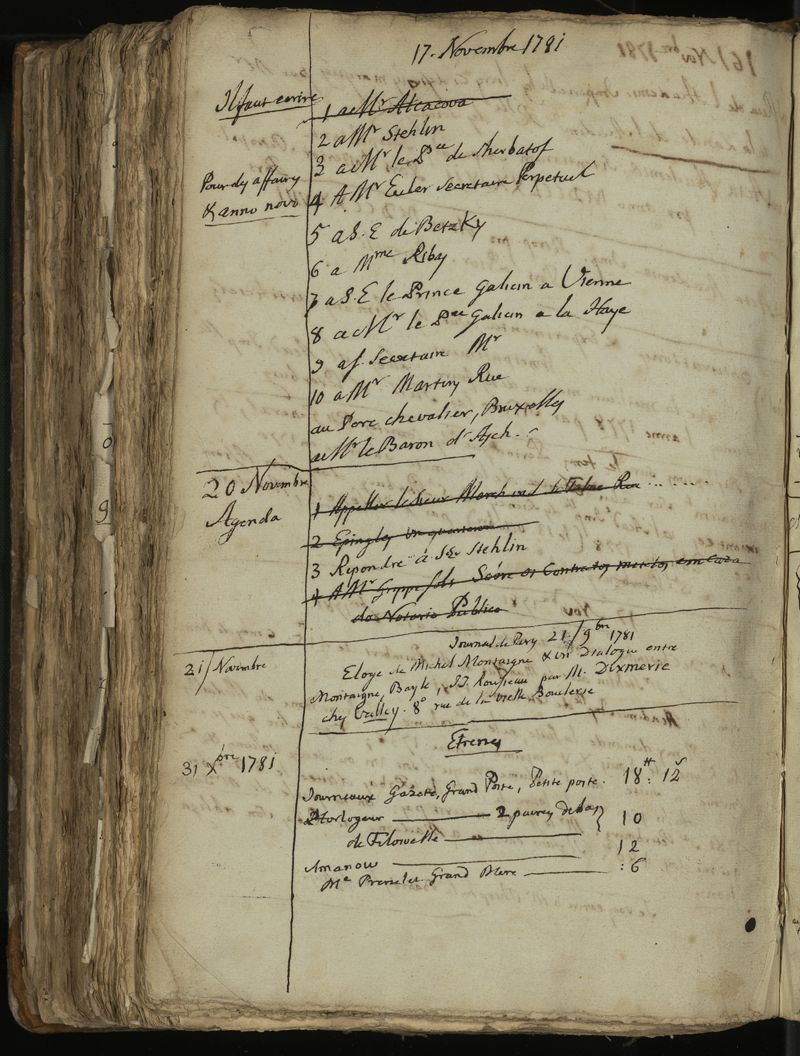 17. Novembre 1781
Il faut ecrire
1 a Mr Alcacova
2 a Mr Stehlin
3 a Mr le Pce de Sherbatof
Pour des affaires
& anno novo
4 A Mr Euler Secretaire Perpetuel
5 a S. E de Betzky
6 a Mme Ribas
7 a S. E le Prince Galicin a Vienne
8 a Mr le Pce Galicin a la Haye
9 a Secretaire Mr
10 a Mr Martin Rue
au Pere chevalier, Bruxelles
a Mr le Baron d'Asch.
20 Novembre
Agenda
1 Appeller le Sieur March
2 Epingles un quarteron
3 Repondre a Sr Stehlin
4 A Mr Grippe Sobre os Contratos metidos em Caza
do Notario Publico
21/Novembre
Journal de Paris 21/9bre 1781
Eloge de Michel Montaigne & un Dialogue entre
Montaigne, Bayle, JJ Rousseau par M. Dixmerie
chez Valley. 8° rue de la vielle Boulerie
31 Xbre 1781
Etrenes
Journeaux Gazete, Grand Poste, Petite poste. 18tt: 12s
Horlogeur 2 paires de bas
de Filoselle 10
Amanow 12
Me Grand Mere :6